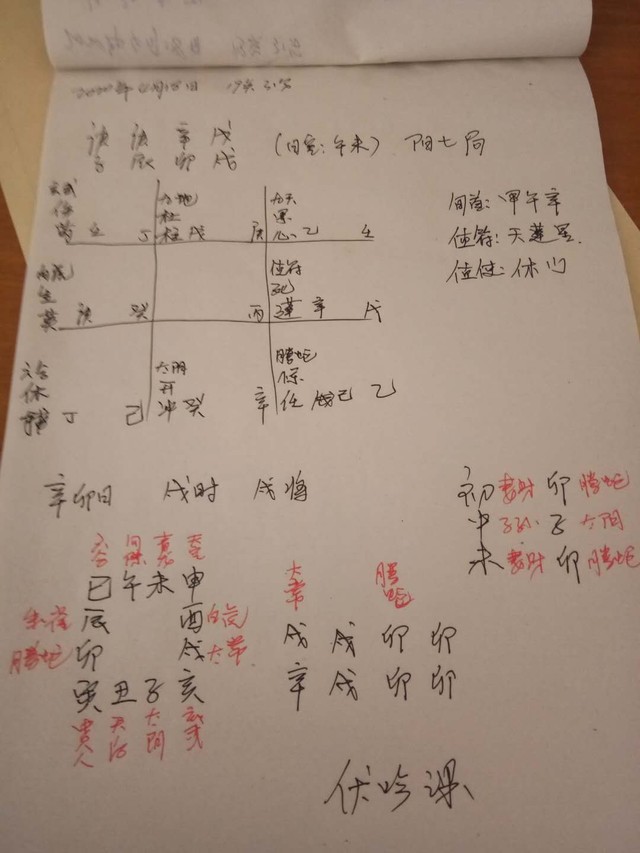 2020年4月15日 19点31分
庚 庚 辛 戊
子 辰 卯 戌 (旬空:午未) 阳七局
旬首:甲午辛
值符:天蓬星
值使:休门
九地
杜
柱 戊 庚
九天
景
心 乙 壬
生
英 庚 癸
丙
值符
死
蓬 辛 戊
六合
休
丁 己
太阴
开
冲 癸 辛
腾蛇
惊
任 己 乙
辛卯日 戌时 戌将
初 妻财 卯 腾蛇
中 子孙 子 太阴
末 妻财 卯 腾蛇
六合
巳 午 未 申
朱雀 辰 酉 白虎
腾蛇 卯 戌 太常
寅 丑 子 亥
贵人 天后 太阴 玄武
太常 腾蛇
戌 戌 卯 卯
辛 戌 卯 卯
伏吟课